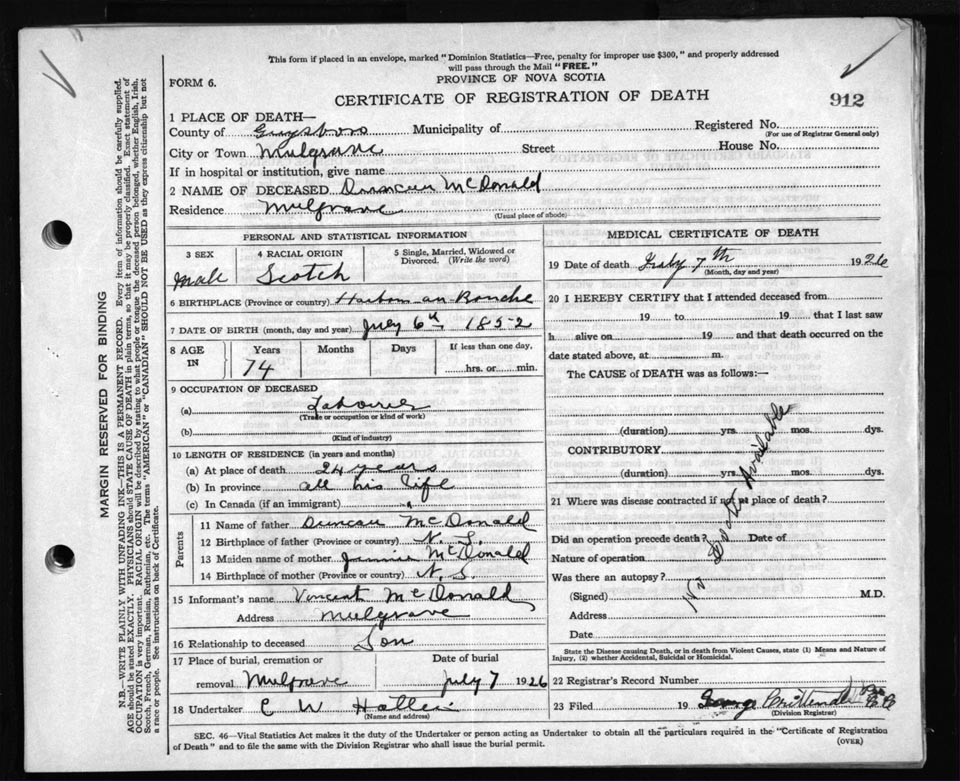 This form if placed in an envelope, marked "Dominion Statistics—Free, penalty for improper use $300," and properly addressed
will pass through the Mail "FREE."
FORM 6.
PROVINCE OF NOVA SCOTIA
CERTIFICATE OF REGISTRATION OF DEATH
912
1 PLACE OF DEATH—
County of Guysboro Municipality of Registered No.
(For use of Registrar General only)
City or Town Mulgrave Street House No.
If in hospital or institution, give name
2 NAME OF DECEASED Duncan McDonald
Residence Mulgrave
(Usual place of abode)
PERSONAL AND STATISTICAL INFORMATION
3 SEX 4 RACIAL ORIGIN 5 Single, Married, Widowed or
Divorced. (Write the word)
Male Scotch
6 BIRTHPLACE (Province or country) Harbour au Bouche
7 DATE OF BIRTH (month, day and year) July 6th 1852
8 AGE IN Years Months Days If less than one day,
74 hrs. or min.
9 OCCUPATION OF DECEASED
(a) Labourer
(Trade or occupation or kind of work)
(b)
(Kind of industry)
10 LENGTH OF RESIDENCE (in years and months)
(a) At place of death 24 years
(b) In province all his life
(c) In Canada (if an immigrant)
Parents
11 Name of father Duncan McDonald
12 Birthplace of father (Province or country) N. S.
13 Maiden name of mother Jennie McDonald
14 Birthplace of mother (Province or country) N. S.
15 Informant's name Vincent McDonald
Address Mulgrave
16 Relationship to deceased Son
17 Place of burial, cremation or Date of burial
removal Mulgrave July 7 1926
18 Undertaker C W
(Name and address)
MEDICAL CERTIFICATE OF DEATH
19 Date of death July 7th 1926
(Month, day and year)
20 I HEREBY CERTIFY that I attended deceased from
19 to 19 that I last saw
h alive on 19 and that death occurred on the
date stated above, at m.
The CAUSE of DEATH was as follows:—
(duration) yrs. mos. dys.
CONTRIBUTORY
(duration) yrs. mos. dys.
21 Where was disease contracted if not at place of death?
Did an operation precede death? Date of
Nature of operation
Was there an autopsy?
(Signed) M.D.
Address
Date
No Available
State the Disease causing Death, or in death from Violent Causes, state (1) Means and Nature of
Injury, (2) whether Accidental, Suicidal or Homicidal.
22 Registrar's Record Number
23 Filed 19 George
(Division Registrar)
SEC. 46—Vital Statistics Act makes it the duty of the Undertaker or person acting as Undertaker to obtain all the particulars required in the "Certificate of Registration
of Death" and to file the same with the Division Registrar who shall issue the burial permit.
(OVER)
MARGIN RESERVED FOR BINDING
N.B.—WRITE PLAINLY WITH UNFADING INK—THIS IS A PERMANENT RECORD. Every item of information should be carefully supplied.
AGE should be stated EXACTLY. PHYSICIANS should STATE CAUSE OF DEATH in plain terms, so that it may be properly classified. Exact statement of
OCCUPATION is very important. RACIAL ORIGIN will be described by stating to what people or tongue the deceased person belonged, whether English, Irish,
Scotch, French, German, Russian, Ruthenian, etc. The terms "AMERICAN" or "CANADIAN" SHOULD NOT BE USED as they express citizenship but not
a race or people. See instructions on back of Certificate.